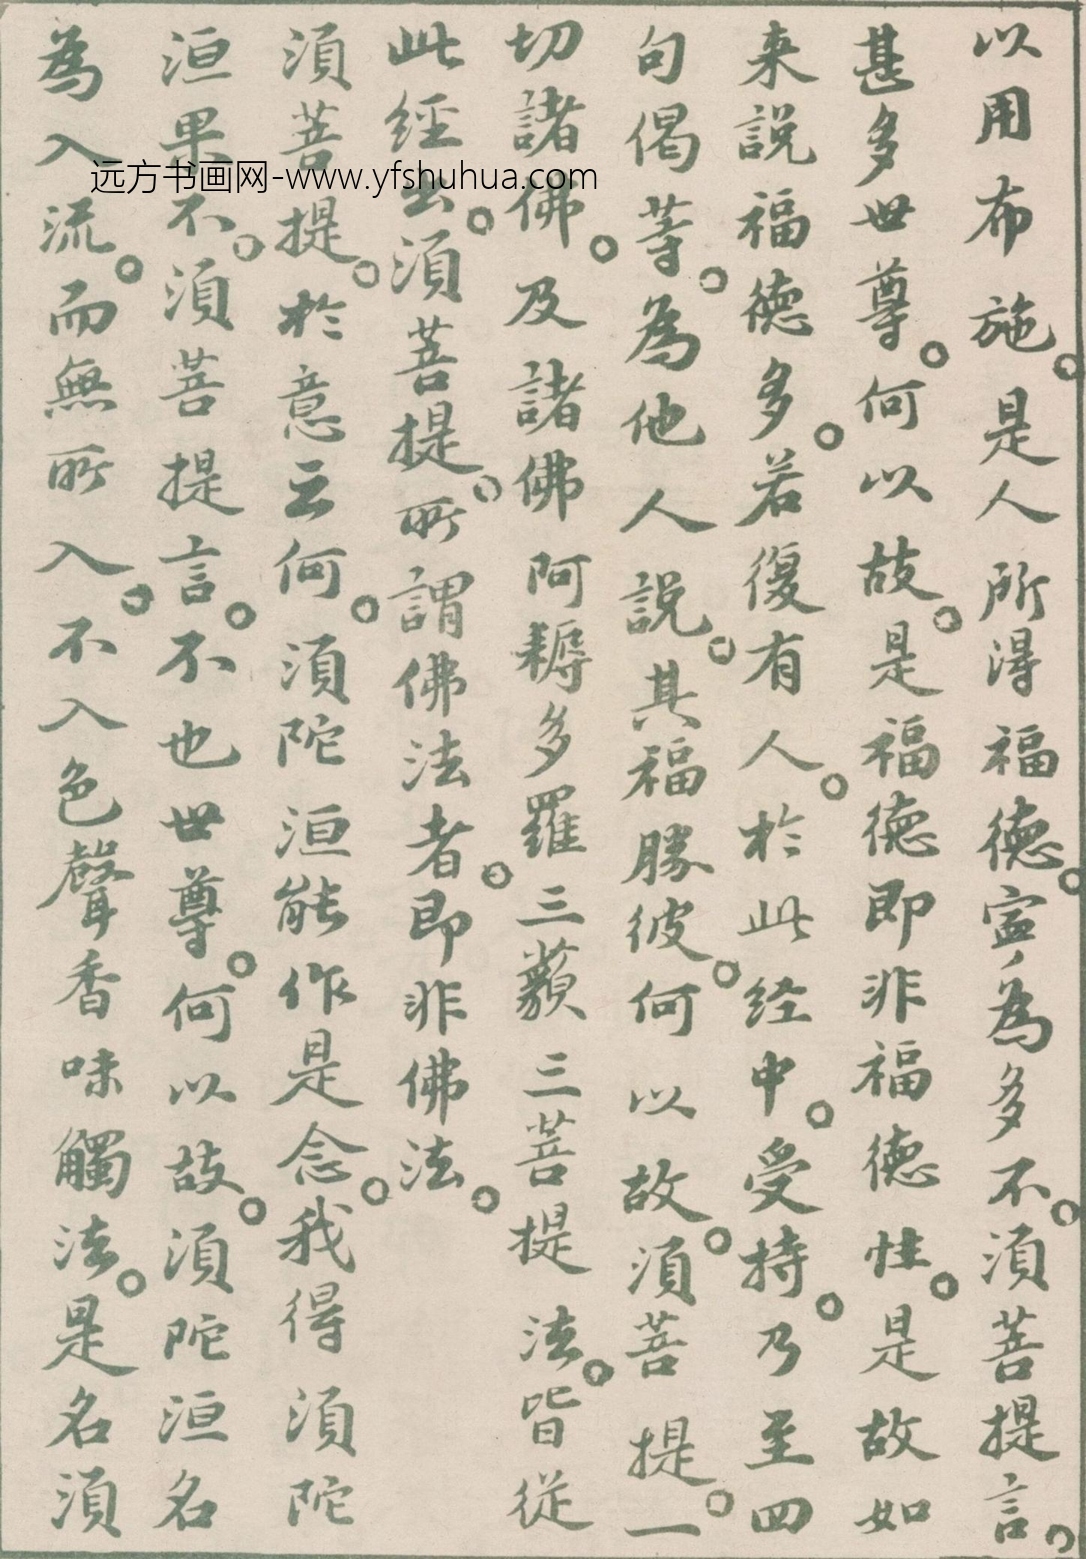 以用布施。是人所得福德。寧為多不。須菩提言。
甚多世尊。何以故。是福德即非福德性。是故如
来說福德多。若復有人。於此经中。受持。乃至四
句偈等。為他人說。其福勝彼。何以故。須菩提。一
切諸佛。及諸佛阿耨多羅三藐三菩提法。皆從
此經出。須菩提。所謂佛法者。即非佛法。
須菩提。於意云何。須陀洹能作是念。我得須陀
洹果不。須菩提言。不也世尊。何以故。須陀洹名
為入流。而無所入。不入色聲香味觸法。是名須
远方书画网-www.yfshuhua.com